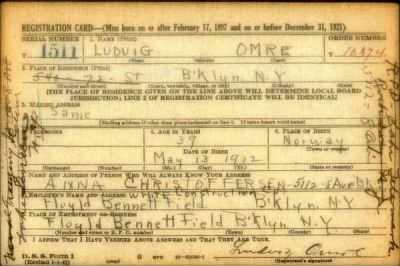 REGISTRATION CARD—(Men born on or after February 17, 1897 and on or before December 31, 1921)
SERIAL NUMBER 1. NAME (Print) ORDER NUMBER
1511 LUDVIG OMRE 10,374
(First) (Middle) (Last)
2. PLACE OF RESIDENCE (Print)
St B'Klyn. N.Y
(Number and street) (Town, township, village, or city) (County) (State)
[THE PLACE OF RESIDENCE GIVEN ON THE LINE ABOVE WILL DETERMINE LOCAL BOARD
JURISDICTION; LINE 2 OF REGISTRATION CERTIFICATE WILL BE IDENTICAL]
3. MAILING ADDRESS
Same
[Mailing address if other than place indicated on line 2. If same insert word same]
4. TELEPHONE 5. AGE IN YEARS 6. PLACE OF BIRTH
39
DATE OF BIRTH Norway
May 13 1902
(Exchange) (Number) (Mo.) (Day) (Yr.) (State or country)
7. NAME AND ADDRESS OF PERSON WHO WILL ALWAYS KNOW YOUR ADDRESS
ANNA CHRISTOFFERSEN - 5112-5 Ave Bk
8. EMPLOYER'S NAME AND ADDRESS
White Construction
Floyd Bennett Field B'Klyn N.Y
9. PLACE OF EMPLOYMENT OR BUSINESS
Floyd Bennett Field B'Klyn. N.Y.
(Number and street or R. F. D. number) (Town) (County) (State)
I AFFIRM THAT I HAVE VERIFIED ABOVE ANSWERS AND THAT THEY ARE TRUE.
Ludvig Omre
D. S. S. Form 1
(Revised 1-1-42) (over) (Registrant's signature)